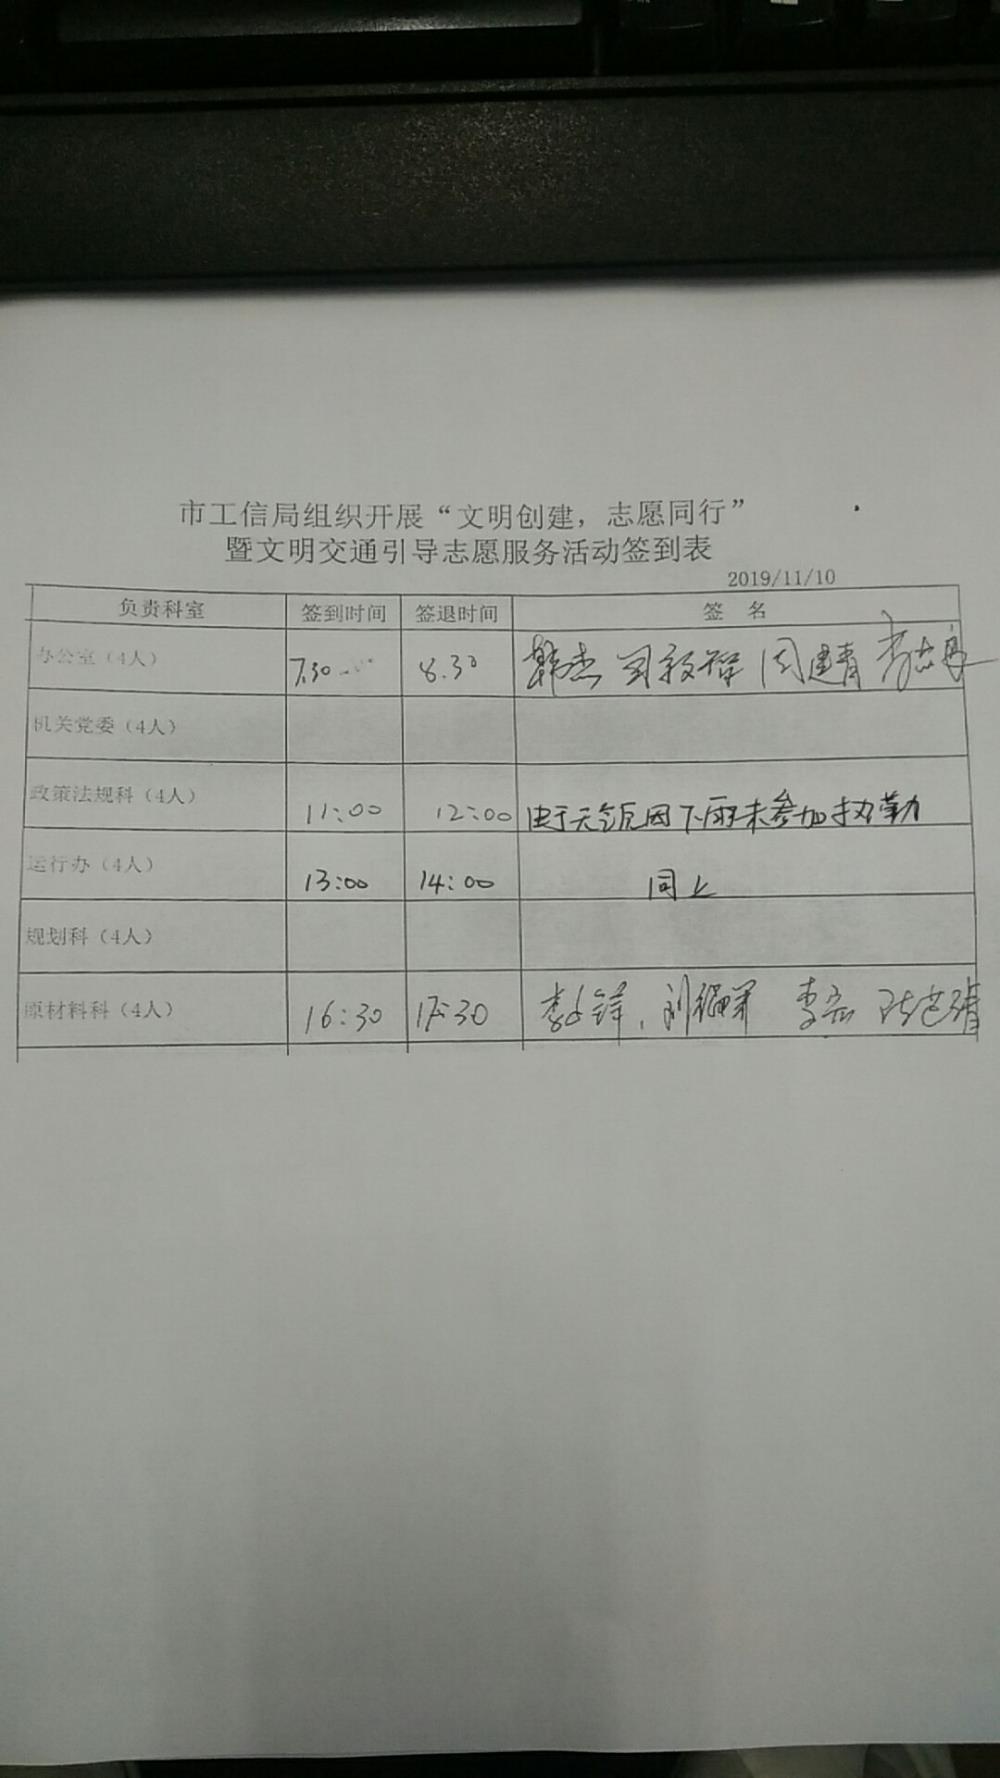 市工信局组织开展“文明创建，志愿同行”
暨文明交通引导志愿服务活动签到表
2019/11/10
负责科室 签到时间 签退时间 签 名
办公室（4人） 7.30 8.30 韩杰 周建青
机关党委（4人）
政策法规科（4人） 11:00 12:00 由于天气原因下雨未参加执勤
运行办（4人） 13:00 14:00 同上
规划科（4人）
原材料科（4人） 16:30 17:30